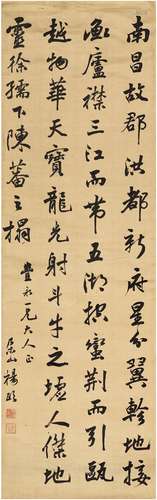 南昌故郡洪都新府星分翼軫地接
衡廬襟三江而帶五湖控蠻荊而引甌
越物華天寶龍光射斗牛之墟人傑地
靈徐孺下陳蕃之榻
大人正
山楊